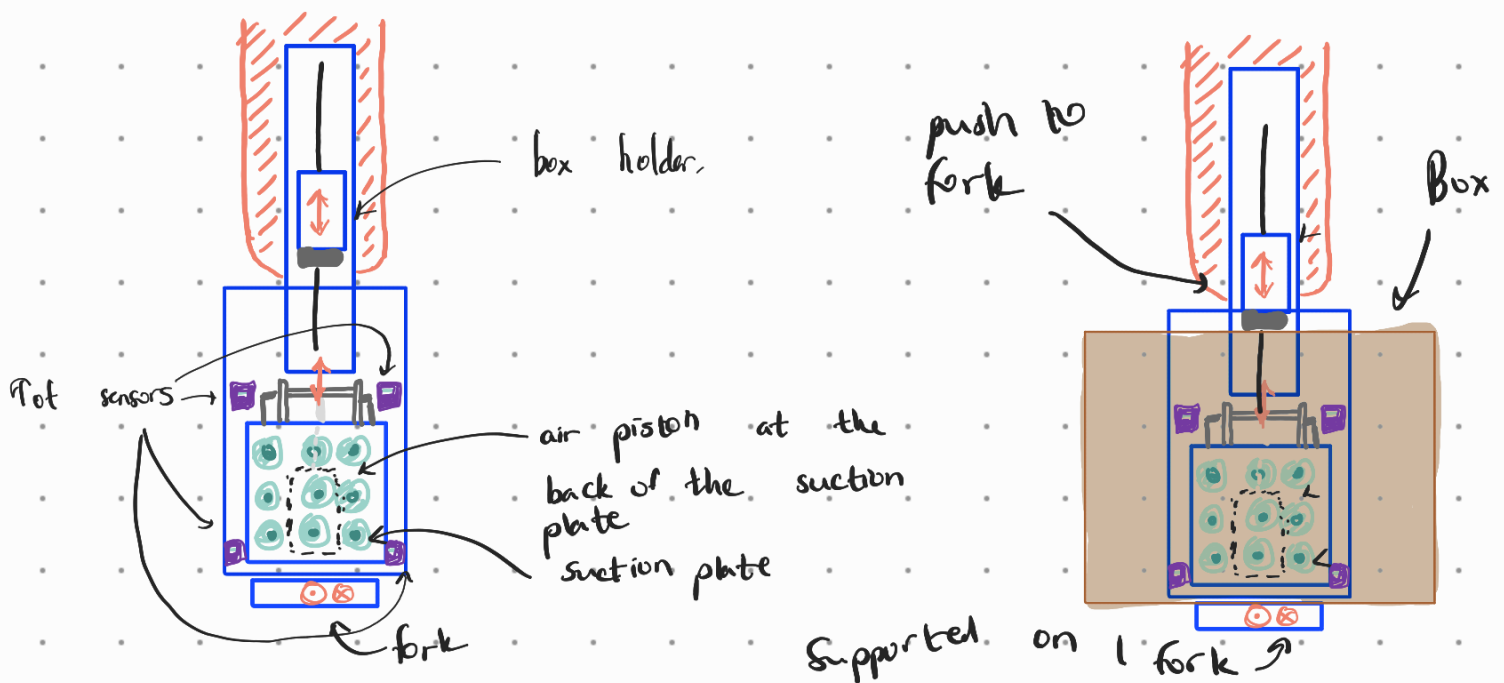 box holder.
Tof sensors
air piston at the
back of the suction
plate
suction plate
fork
push to
fork
Box
Supported on 1 fork